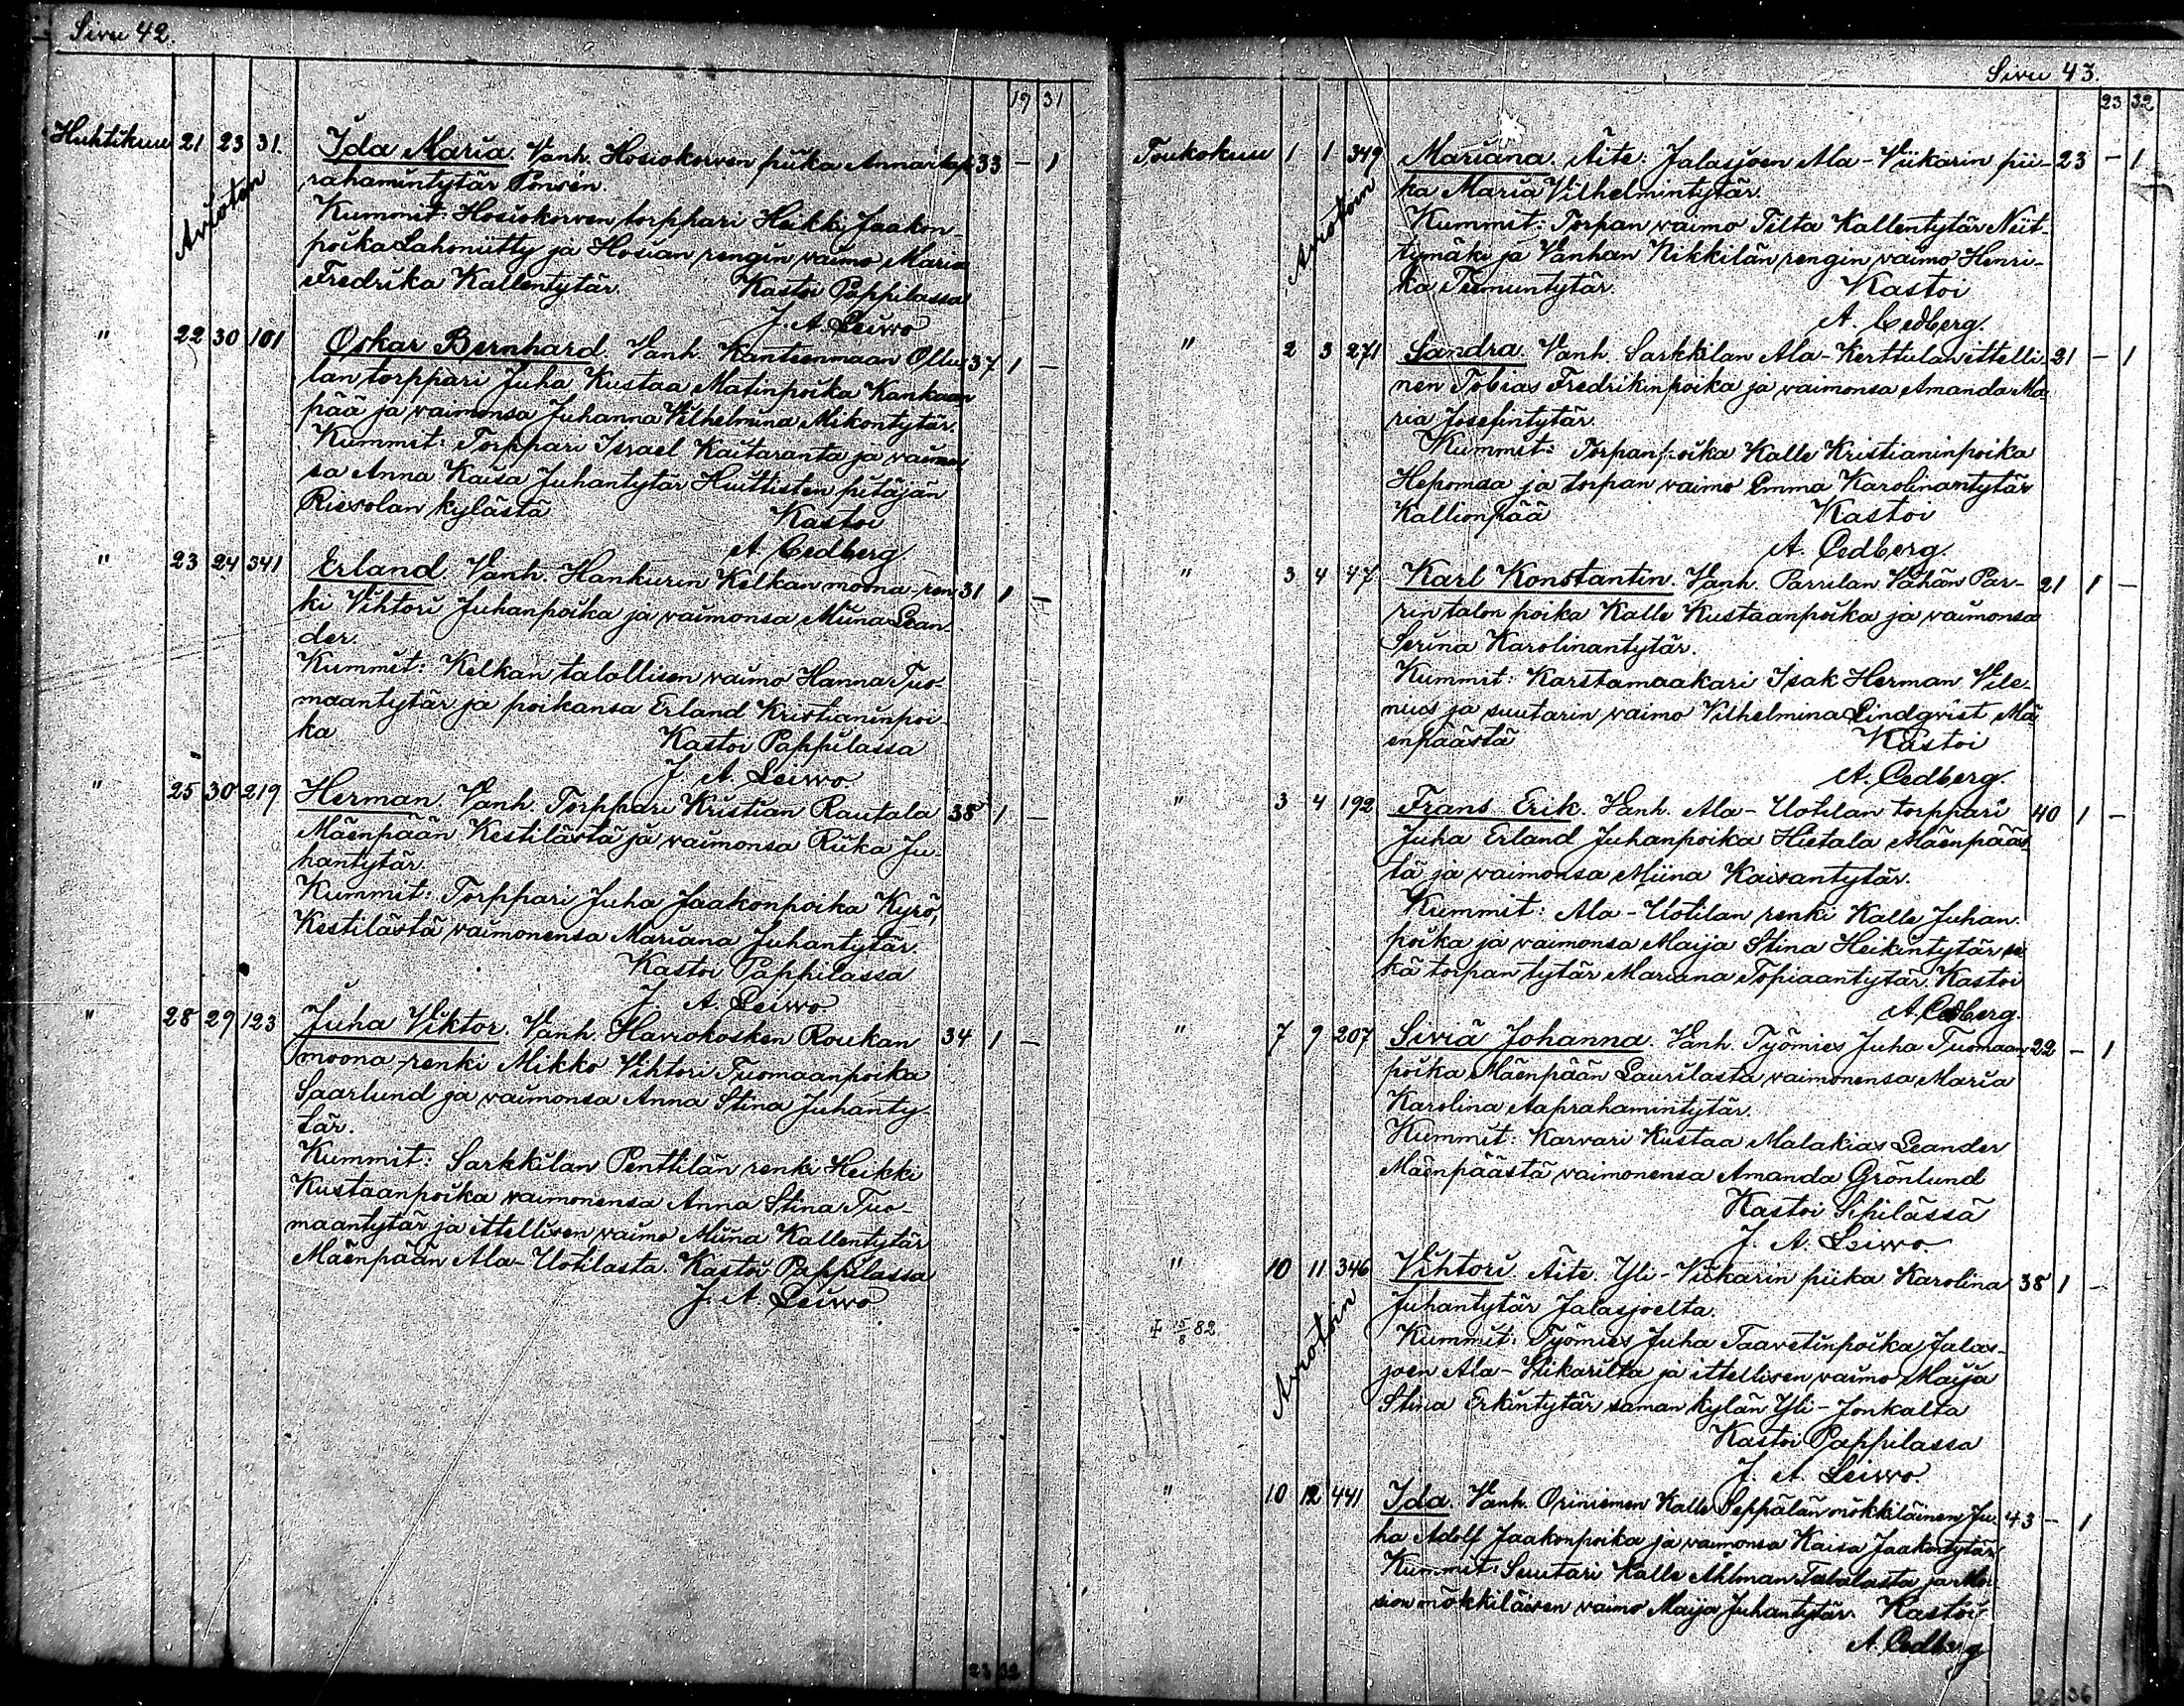 Sivu 42.
19 31
Huhtikuu 21 23 31. Ida Maria. Vanh. Hosiokorven piika Anna 33 — 1
Avioton
rahamintytär Ponsén.
Kummit: Hosiokorven torppari Heikki Jaakon-
poika Lahoniitty ja Hosian rengin vaimo Maria
Fredrika Kallentytär. Kastoi Pappilassa
J. A. Leiwo
" 22 30 101 Oskar Bernhard. Vanh. Kanteenmaan Ollu- 37 1 —
lan torppari Juha Kustaa Matinpoika Kankaan-
pää ja vaimonsa Juhanna Vilhelmina Mikontytär.
Kummit: Torppari Israel Kaitaranta ja vaimon-
sa Anna Kaisa Juhantytär Huittisten pitäjän
Rievolan kylästä Kastoi
A. Cedberg.
" 23 24 341 Erland. Vanh. Hankurin Kelkan moona-ren- 31 1 —
ki Vihtori Juhanpoika ja vaimonsa Miina Lean-
der.
Kummit: Kelkan talollisen vaimo Hanna Tuo-
maantytär ja poikansa Erland Kristianinpoi-
ka Kastoi Pappilassa
J. A. Leiwo.
" 25 30 219 Herman. Vanh. Torppari Kristian Rautala 38 1 —
Mäenpään Kestilästä ja vaimonsa Riika Ju-
hantytär.
Kummit: Torppari Juha Jaakonpoika Kyrö,
Kestilästä vaimonensa Mariana Juhantytär.
Kastoi Pappilassa
J. A. Leiwo
" 28 29 123 Juha Viktor. Vanh. Haviokosken Roukan 34 1 —
moona-renki Mikko Vihtori Tuomaanpoika
Saarlund ja vaimonsa Anna Stina Juhanty-
tär.
Kummit: Sarkkilan Penttilän renki Heikki
Kustaanpoika vaimonensa Anna Stina Tuo-
maantytär ja ittellisen vaimo Miina Kallentytär
Mäenpään Ala-Uotilasta. Kastoi Pappilassa
J. A. Leiwo
23 32
Sivu 43.
23 32
Toukokuu 1 1 349 Mariana. Äite: Jalasjoen Ala-Viikarin pii- 23 — 1
Avioton
ka Maria Vilhelmintytär.
Kummit: Torpan vaimo Tilta Kallentytär Niit-
tymäki ja Vanhan Nikkilän rengin vaimo Henri-
ka Teemuntytär. Kastoi
A. Cedberg.
" 2 3 271 Sandra. Vanh. Sarkkilan Ala-Kerttulan ittelli- 21 — 1
nen Tobias Fredrikinpoika ja vaimonsa Amanda Ma-
ria Josefintytär.
Kummit: Torpanpoika Kalle Kristianinpoika
Hepomaa ja torpan vaimo Emma Karolinantytär
Kallionpää Kastoi
A. Cedberg.
" 3 4 47 Karl Konstantin. Vanh. Parrilan Vähän Par- 21 1 —
rin talon poika Kalle Kustaanpoika ja vaimonsa
Serina Karolinantytär.
Kummit: Karstamaakari Isak Herman Vile-
nius ja suutarin vaimo Vilhelmina Lindqvist Mä-
enpäästä Kastoi
A. Cedberg.
" 3 4 192 Frans Erik. Vanh. Ala-Uotilan torppari 40 1 —
Juha Erland Juhanpoika Hietala Mäenpääs-
tä ja vaimonsa Miina Kaisantytär.
Kummit: Ala-Uotilan renki Kalle Juhan-
poika ja vaimonsa Maija Stina Heikintytär se-
kä torpan tytär Mariana Topiaantytär. Kastoi
A. Cedberg.
" 7 9 207 Siviä Johanna. Vanh. Työmies Juha Tuomaan- 22 — 1
poika Mäenpään Laurilasta vaimonensa Maria
Karolina Aaprahamintytär.
Kummit: Karvari Kustaa Malakias Leander
Mäenpäästä vaimonensa Amanda Grönlund
Kastoi Sipilässä
J. A. Leiwo.
" 10 11 346 Vihtori. Äite. Yli-Viikarin piika Karolina 38 1 —
Avioton
Juhantytär Jalasjoelta.
‡ 15/8 82
Kummit: Työmies Juha Taavetinpoika Jalas-
joen Ala-Viikarilta ja ittellisen vaimo Maija
Stina Erkintytär saman kylän Yli-Jonkalta
Kastoi Pappilassa
J. A. Leiwo.
" 10 12 441 Ida. Vanh. Oriniemen Kalle Seppälän mökkiläinen Ju- 43 — 1
ha Adolf Jaakonpoika ja vaimonsa Kaisa Jaakontytär.
Kummit: Suutari Kalle Åhlman Talalasta ja
mökkiläisen vaimo Maija Juhantytär. Kastoi
A. Cedberg